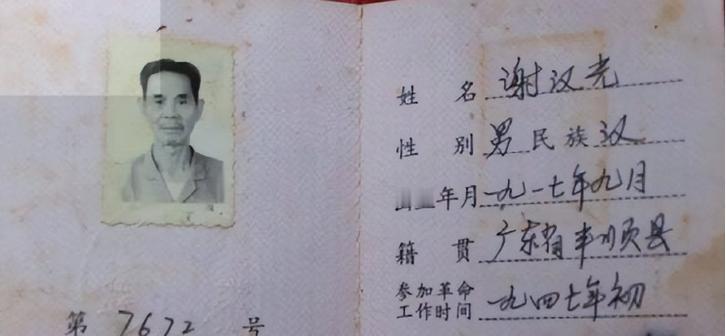 第 7672 号
姓名 谢汉光
性别 男 民族 汉
年月 一九一七年九月
籍贯 广东省丰顺县
参加革命工作时间 一九四七年初